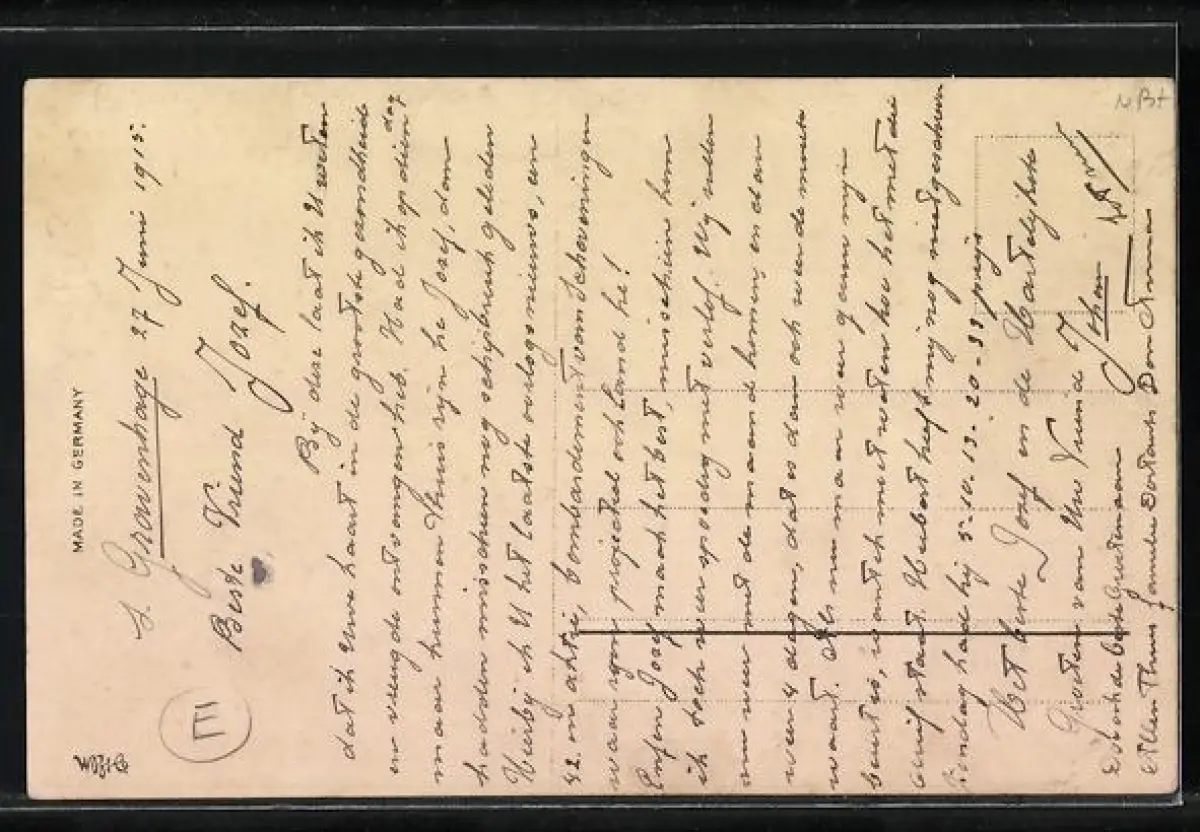 MADE IN GERMANY
s. Gravenhage 27 Juni 1915.
Beste Vriend Jozef.
Bij deze laat ik U weten
dat ik uwe kaart in de grootste gezondheid
en vreugde ontvangen heb. Had ik op dien dag
maar kunnen thuis zijn he Jozef, dan
hadden misschien nog schipbreuk geleden
Hierbij ik U het laatste oorlogsnieuws, een
42. en achtie, bombardement van Scheveningen
waar een projectiel ook land he!
Enfin Jozef maak het best, misschien kom
ik toch weer spoedig met verlof. Wij zullen
nu weer met de maand komen en dan
weer 4 dagen, dat is dan ook weer de moeite
waard. Als nu maar weer gauw mijn
beurt is, want ik moet weten hoe het met die
staat. Hubert heeft mij nog niet geschreven
Zondag had hij 5-10-13-20-33 prijs
Het beste Jozef en de Hartelijkste
Groeten van Uw Vriend Johan
Ook de beste Groeten aan
Allen Thuis familie en Anna
E
NB+